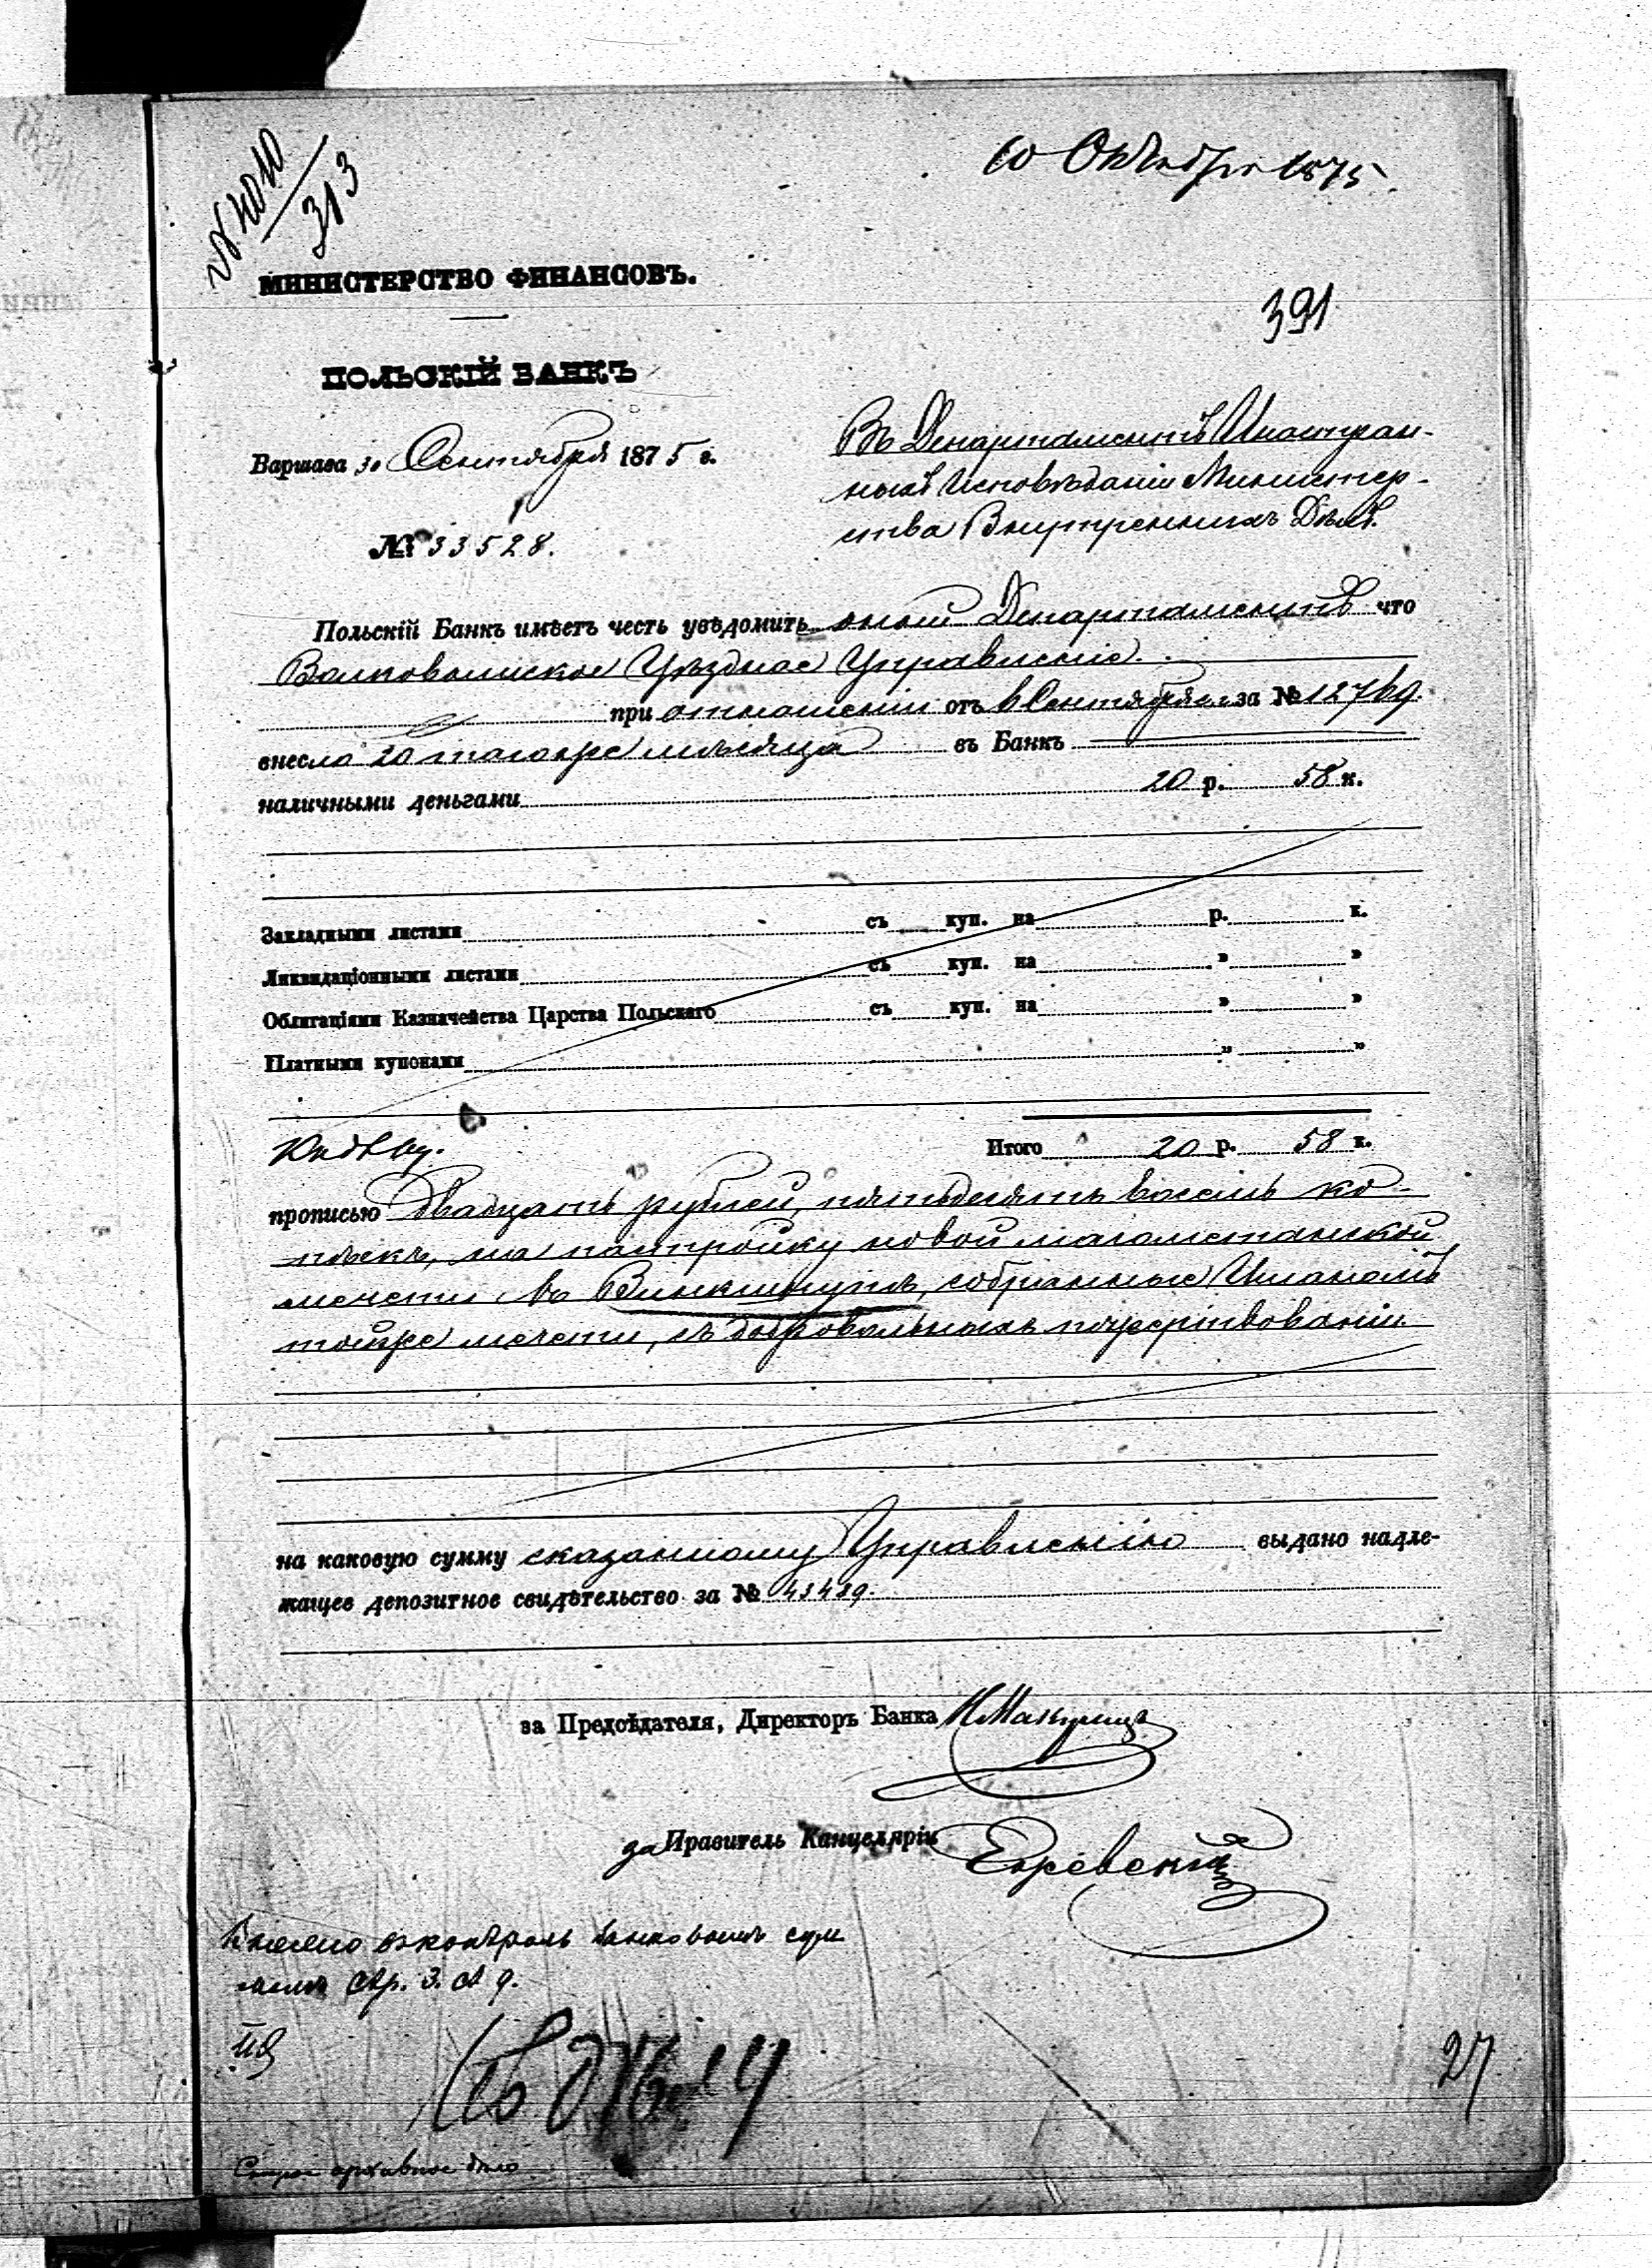 10 Октября 1875.
№ 4010
313
МИНИСТЕРСТВО ФИНАНСОВЪ.
391
ПОЛЬСКІЙ БАНКЪ
Варшава 30 Сентября 1875 г.
№ 33528.
Въ Департаментъ Иностран-
ныхъ Исповѣданій Министер-
ства Внутреннихъ Дѣлъ.
Польскій Банкъ имѣетъ честь увѣдомить оный Департаментъ что
Волковышское Уѣздное Управленіе
при отношеніи отъ 6 Сентября за № 12769.
внесло 20 тогоже мѣсяца въ Банкъ
наличными деньгами 20 р. 58 к.
Закладными листами съ куп. на р. к.
Ликвидаціонными листами съ куп. на " "
Облигаціями Казначейства Царства Польскаго съ куп. на " "
Платными купонами " "
Итого 20 р. 58 к.
прописью Двадцать рублей, пятьдесять восемь ко-
пѣекъ, на постройку новой магометанской
мечети въ Винкшнупѣ, собранные Имамомъ
тойже мечети, съ добровольныхъ пожертвованій.
на каковую сумму сказанному Управленію выдано надле-
жащее депозитное свидѣтельство за № 43489.
за Предсѣдателя, Директоръ Банка
за Правитель Канцеляріи
Внесено въ контроль банковымъ сум
мамъ стр. 3. ст 9.
Къ дѣлу
27
Старое архивное дѣло